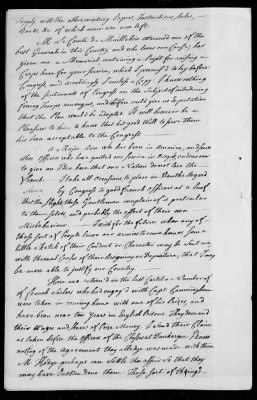 Supply with the Necessary Papers, Instructions, Rules,
Bonds, &c. of which none are now left.
M. Le Comte de Maillebois esteemed one of the
best Generals in this Country, and who loves our Cause, has
given me a Memorial containing a Project for raising a
Corps here for your Service, which I promis'd to lay before
Congress and accordingly I enclose a Copy. I know nothing
of the Sentiments of Congress on the Subject of introducing
foreign Troops among us, and therefore could give no Expectation
that the Plan would be adopted. It will however be a
Pleasure to him to know that his good Will to serve them
has been acceptable to the Congress
A Major Borre who has been in America, and some
other Officers who have quitted our Service in Disgust, endeavour
to give an Idea here that our Nation does not love the
French. I take all occasions to place in View the Regard
shown by Congress to good French Officers as a Proof
that the Slight these Gentlemen complain of is particular
to them selves, and probably the effect of their own
Misbehaviour. I wish for the future when any of
these sort of People leave our Armies to come home, some
little Sketch of their Conduct or Character may be sent me
with the real Causes of their Resignation or Departure, that I may
be more able to justify our Country.
Here are returned in the last Cartel a Number of
French Sailors who had engag'd with Capt. Cunningham
were taken in coming home with one of his Prizes, and
have been near two Years in English Prisons. They demand
their Wages and Share of Prize Money. I send their Claim
as taken before the Officers of the Classes at Dunkerque. I know
nothing of the Agreement they alledge was made with them
M. Hodge perhaps can settle the affair so that they
may have Justice done them. These sort of things